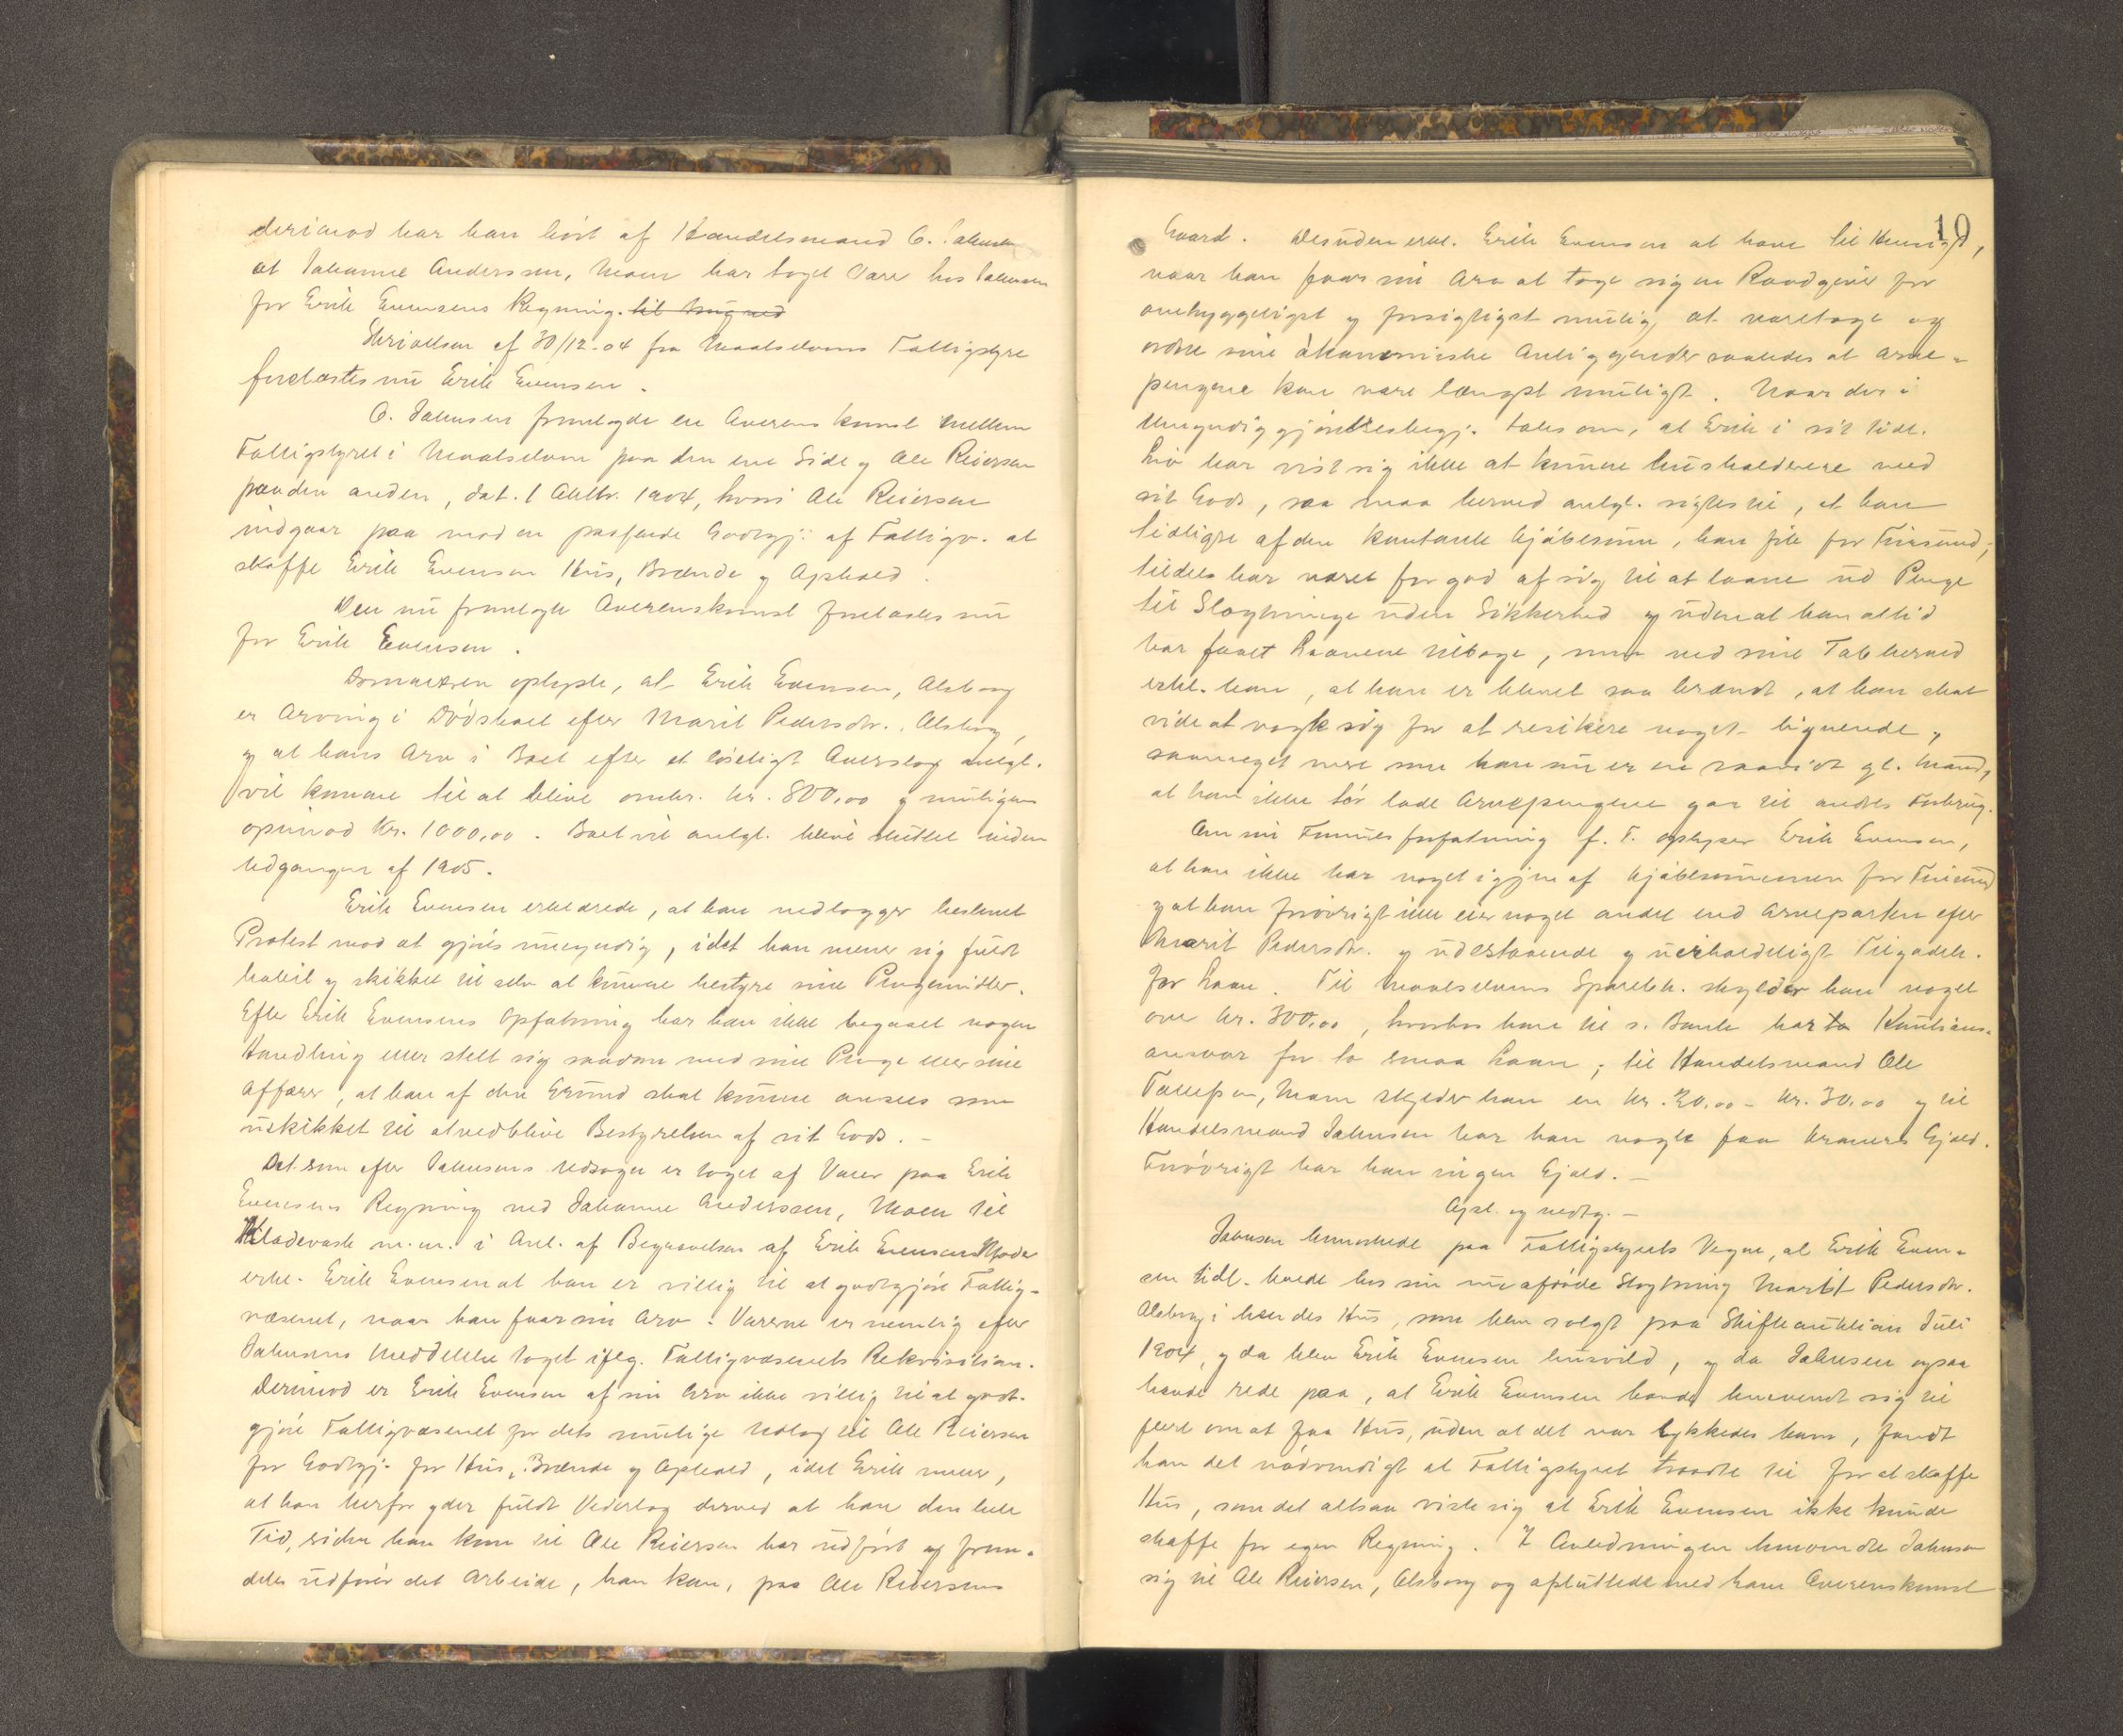 derimod har han hørt af Handelsmand O. Johnsen
at Johanne Anderssen, Moen har taget Varer hos Johnsen
for Erik Evensens Regning. til
Skrivelsen af 30/12-04 fra Maalselvens Fattigstyre
forelæstes nu Erik Evensen.
O. Johnsen fremlagde en Overenskomst mellem
Fattigstyret i Maalselven paa den ene Side og Ole Reiersen
paa den anden, dat. 1 Oktbr. 1904, hvori Ole Reiersen
indgaar paa mod en passende Godtgj. af Fattigv. at
skaffe Erik Evensen Hus, Brænde og Ophold.
Den nu fremlagte Overenskomst forelæstes nu
for Erik Evensen.
Dommeren oplyste, at Erik Evensen, Olsborg
er Arving i Dødsboet efter Marit Pedersdtr., Olsborg,
og at hans Arv i Boet efter et løseligt Overslag antagl.
vil komme til at blive omkr. kr. 800,00 og muligens
opimod Kr. 1000,00. Boet vil antagl. blive sluttet inden
Udgangen af 1905.
Erik Evensen erklærede, at han nedlægger bestemt
Protest mod at gjøres umyndig, idet han mener sig fuldt
habil og skikket til selv at kunne bestyre sine Pengemidler.
Efter Erik Evensens Opfatning har han ikke begaaet nogen
Handling eller stelt sig saadan med sine Penge eller sine
Affærer, at han af den Grund skal kunne ansees som
uskikket til at vedblive Bestyrelsen af sit Gods. –
Det som efter Johnsens Udsagn er taget af Varer paa Erik
Evensens Regning ved Johanne Anderssen, Moen til
Klædevask m.m. i Anl. af Begravelsen af Erik Evensens Moder
erkl. Erik Evensen at han er villig til at godtgjøre Fattig-
væsenet, naar han faar sin Arv. Varerne er nemlig efter
Johnsens Meddelelse taget iflg. Fattigvæsenets Rekvisition.
Derimod er Erik Evensen af sin Arv ikke villig til at godt-
gjøre Fattigvæsenet for dets mulige Udlæg til Ole Reiersen
for Godtgj. for Hus, Brænde og Ophold, idet Erik mener,
at han herfor yder fuldt Vederlag derved at han den hele
Tid, siden han kom til Ole Reiersen har udført og frem-
deles udfører det Arbeide, han kan, paa Ole Reiersens
19
Gaard. Desuden erkl. Erik Evensen at have til Hensigt,
naar han faar sin Arv at tage sig en Raadgiver for
omhyggeligst og forsigtigst mulig at varetage og
ordne sine økonomiske Anliggender saaledes at Arve-
pengene kan vare længst muligt. Naar der i
Umyndiggjørelsesbegj. tales om, at Erik i sit tidl.
Liv har vist sig ikke at kunne husholdere med
sit Gods, saa maa herved antagl. sigtes til, at han
tidligere af den kontante Kjøbesum, han fik for Fursund,
tildels har været for god af sig til at laane ud Penge
til Slægtninge uden Sikkerhed og uden at han altid
har faaet Laanene tilbage, men ved sine Tab herved
erkl. han, at han er blevet saa brændt, at han skal
vide at vogte sig for at resikere noget lignende,
saameget mere som han nu er en saavidt gl. Mand,
at han ikke tør lade Arvepengene gaa til andres Forbrug.
Om sin Formuesforfatning f. T. oplyser Erik Evensen,
at han ikke har noget igjen af Kjøbesummen for Fursund
og at han forøvrigt ikke eier noget andet end Arveparten efter
Marit Pedersdtr. og udestaaende og uerholdeligt Tilgodeh.
for Laan. Til Maalselvens Spareb. skylder han noget
over kr. 300,00, hvorhos han til s. Bank har Kautions-
ansvar for to smaa Laan; til Handelsmand Ole
Tollefsen, Moen skylder han en kr. 20,00 – kr. 30,00 og til
Handelsmand Johnsen har han nogle faa Kroners Gjæld.
Forøvrigt har han ingen Gjæld. –
Opl. og vedtg. –
Johnsen bemærkede paa Fattigstyrets Vegne, at Erik Even-
sen tidl. boede hos sin nu afdøde Slægtning Marit Pedersdtr.
Olsborg i hendes Hus, som blev solgt paa Skifteauktion Juli
1904, og da blev Erik Evensen husvild, og da Johnsen ogsaa
havde rede paa, at Erik Evensen havde henvendt sig til
flere om at faa Hus, uden at det var lykkedes ham, fandt
han det nødvendigt at Fattigstyret traadte til for at skaffe
Hus, som det altsaa viste sig at Erik Evensen ikke kunde
skaffe for egen Regning. I Anledningen henvendte Johnsen
sig til Ole Reiersen, Olsborg og afsluttede med ham Overenskomst